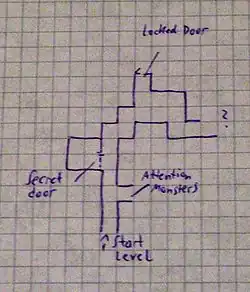 Locked Door
?
Attention
Monsters
Secret
door
Start
Level